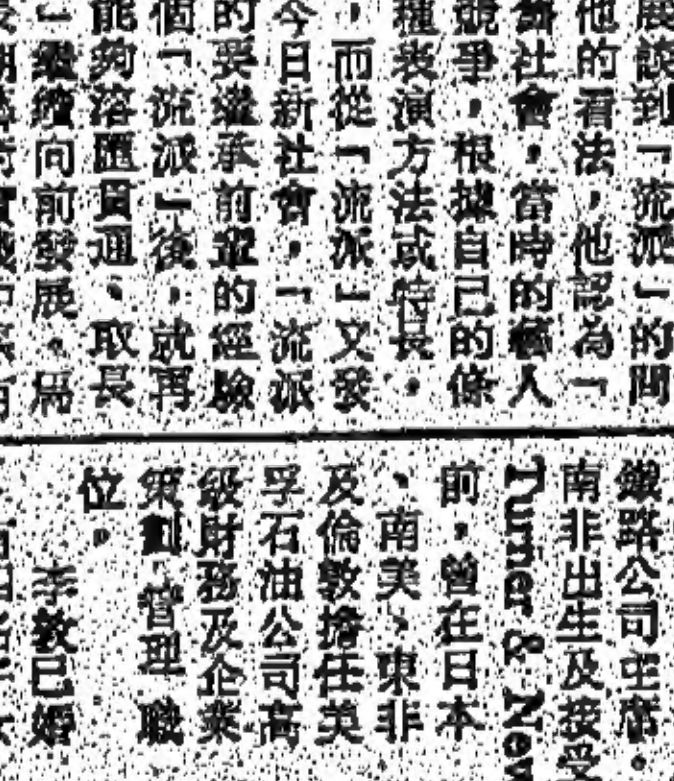 展談到「流派」的問
他的看法，他認為「
社會，當時的藝人
競爭，根據自己的條
種表演方法或特長，
，而從「流派」又發
今日新社會，「流派
的要繼承前輩的經驗
個「流派」後，就再
能夠落匯貫通、取長
」繼續向前發展。
鐵路公司主席。
南非出生及接受
Turner & New
前，曾在日本
、南美、東非
及倫敦擔任美
孚石油公司高
級財務及企業
策劃管理職
位。
李敦已婚